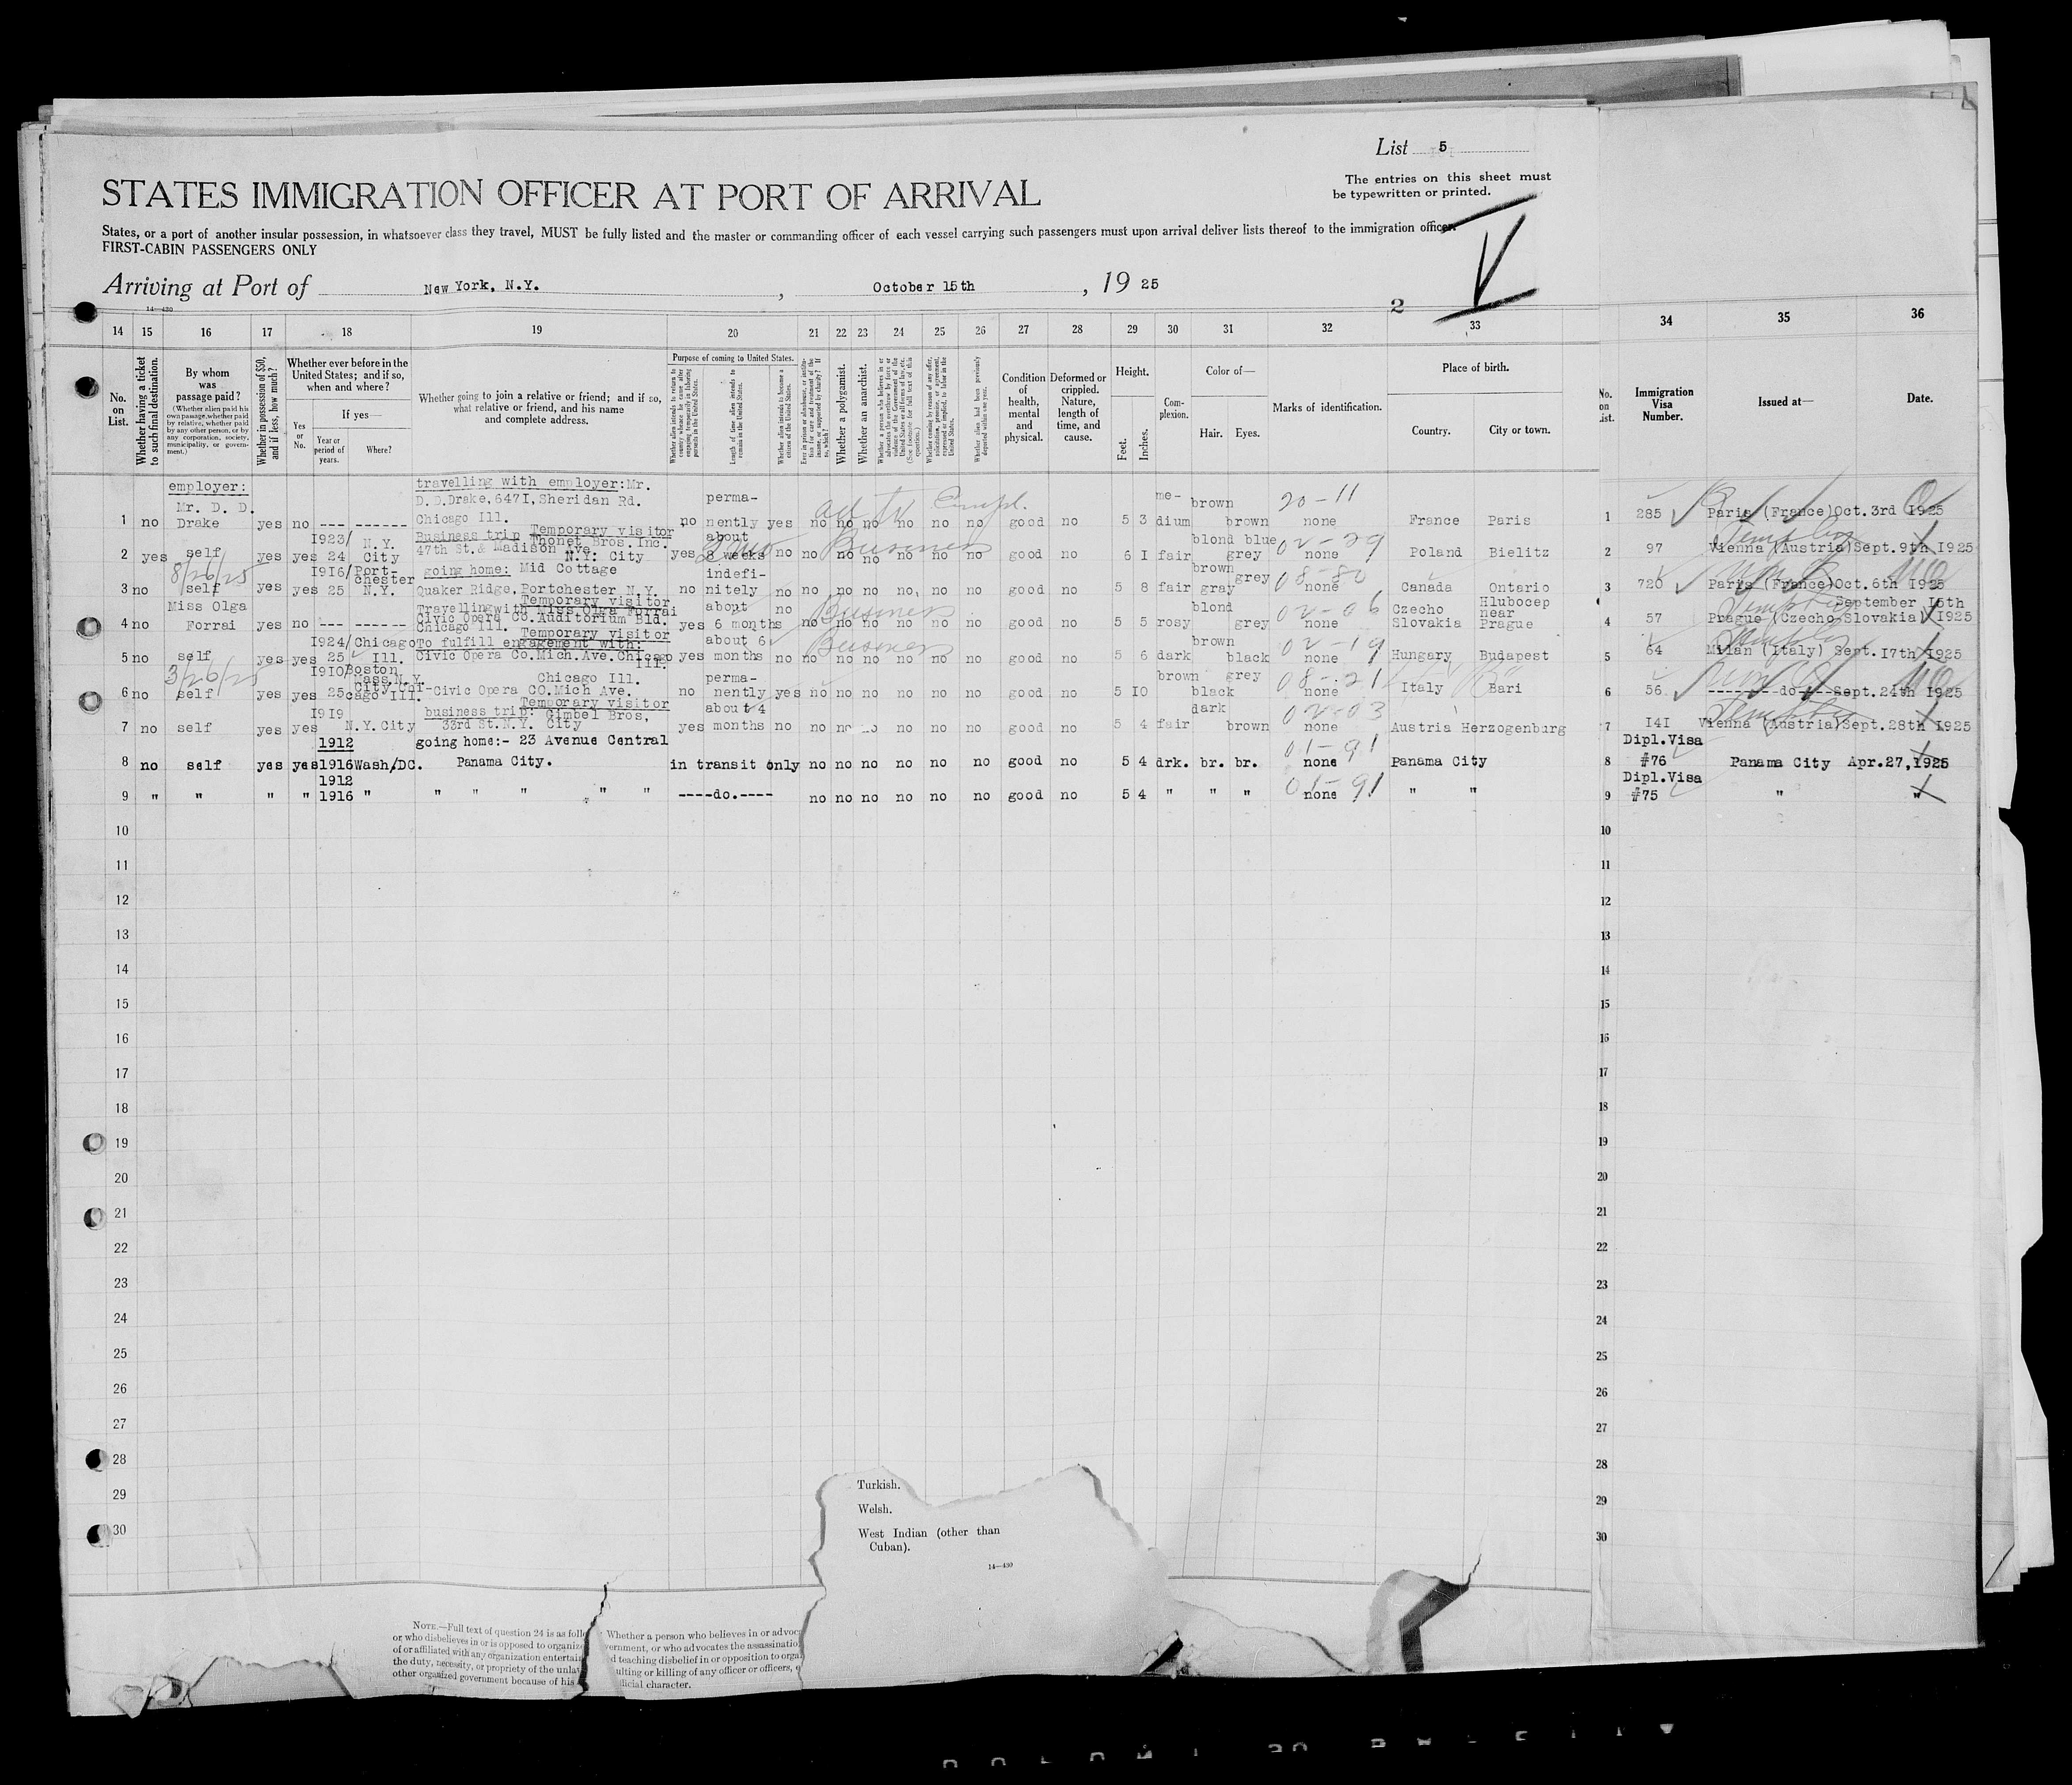 List 5
The entries on this sheet must
be typewritten or printed.
STATES IMMIGRATION OFFICER AT PORT OF ARRIVAL
States, or a port of another insular possession, in whatsoever class they travel, MUST be fully listed and the master or commanding officer of each vessel carrying such passengers must upon arrival deliver lists thereof to the immigration officer.
FIRST-CABIN PASSENGERS ONLY
V
Arriving at Port of New York, N.Y. , October 15th , 19 25
14—430
2
14 15 16 17 18 19 20 21 22 23 24 25 26 27 28 29 30 31 32 33 34 35 36
No. on List.
Whether having a ticket to such final destination.
By whom was passage paid?
(Whether alien paid his own passage, whether paid by relative, whether paid by any other person, or by any corporation, society, municipality, or government.)
Whether in possession of $50, and if less, how much?
Whether ever before in the United States; and if so, when and where?
Yes or No.
If yes—
Year or period of years.
Where?
Whether going to join a relative or friend; and if so, what relative or friend, and his name and complete address.
Purpose of coming to United States.
Length of time alien intends to remain in the United States.
Whether alien intends to become a citizen of the United States.
Whether a polygamist.
Whether an anarchist.
Condition of health, mental and physical.
Deformed or crippled. Nature, length of time, and cause.
Height.
Feet.
Inches.
Complexion.
Color of—
Hair.
Eyes.
Marks of identification.
Place of birth.
Country.
City or town.
No. on List.
Immigration Visa Number.
Issued at—
Date.
employer: travelling with employer:Mr.
Mr. D. D. D.D.Drake,6471,Sheridan Rd. perma- me- brown 20-11
1 no Drake yes no --- ------ Chicago Ill. no nently yes no no no no no no good no 5 3 dium brown none France Paris 1 285 Paris (France) Oct. 3rd 1925
I923/ N.Y. Business trip Temporary visitor about Business blond blue 02-29
Thonet Bros.Inc.
2 yes self yes yes 24 City 47th St.& Madison Ave. N.Y. City yes 8 weeks no no no no no no no good no 6 I fair grey none Poland Bielitz 2 97 Vienna (Austria) Sept. 9th I925
8/26/25 I916/ Port-chester going home: Mid Cottage indefi- brown grey 08-80
3 no self yes yes 25 N.Y. Quaker Ridge, Portchester N.Y. no nitely no no no no no no no good no 5 8 fair gray none Canada Ontario 3 720 Paris (France) Oct. 6th I925
Miss Olga Temporary visitor
Travelling with Miss Olga Forrai about no Business blond 02-06 Czecho Hlubocep near September I5th
Civic Opera Co.Auditorium Bld.
4 no Forrai yes no --- ------ Chicago Ill. yes 6 months no no no no no no good no 5 5 rosy grey none Slovakia Prague 4 57 Prague (Czecho Slovakia) I925
I924/ Chicago To fulfill engagement with: Temporary visitor about 6 Business brown 02-19
5 no self yes yes 25 Ill. Civic Opera Co.Mich.Ave.Chicago Ill. yes months no no no no no no no good no 5 6 dark black none Hungary Budapest 5 64 Milan (Italy) Sept. I7th I925
3/26/25 I9I0/ Boston Mass.N.Y. Chicago Ill. perma- brown grey 08-21
6 no self yes yes 25 City Chi-cago Ill. Civic Opera CO.Mich Ave. no nently yes no no no no no no good no 5 I0 black none Italy Bari 6 56 -------do---- Sept. 24th I925
I9I9 business trip: Temporary visitor about 4 dark 02-03
Gimbel Bros,
7 no self yes yes N.Y.City 33rd St.N.Y. City yes months no no no no no no no good no 5 4 fair brown none Austria Herzogenburg 7 I4I Vienna (Austria) Sept. 28th I925
1912 going home:- 23 Avenue Central 01-91 Dipl.Visa
8 no self yes yes 1916 Wash/DC. Panama City. in transit only no no no no no no good no 5 4 drk. br. br. none Panama City 8 #76 Panama City Apr.27,1925
1912 01-91 Dipl.Visa
9 " " " " 1916 " " " " " " ----do.---- no no no no no no good no 5 4 " " " none " " 9 #75 " "
10 10
11 11
12 12
13 13
14 14
15 15
16 16
17 17
18 18
19 19
20 20
21 21
22 22
23 23
24 24
25 25
26 26
27 27
28 28
29 29
30 30
Turkish.
Welsh.
West Indian (other than
Cuban).
14—430
NOTE.—Full text of question 24 is as follo Whether a person who believes in or advoc
or who disbelieves in or is opposed to organize vernment, or who advocates the assassinatio
of or affiliated with any organization entertain d teaching disbelief in or opposition to orga
the duty, necessity, or propriety of the unlaw ulting or killing of any officer or officers,
other organized government because of his ficial character.